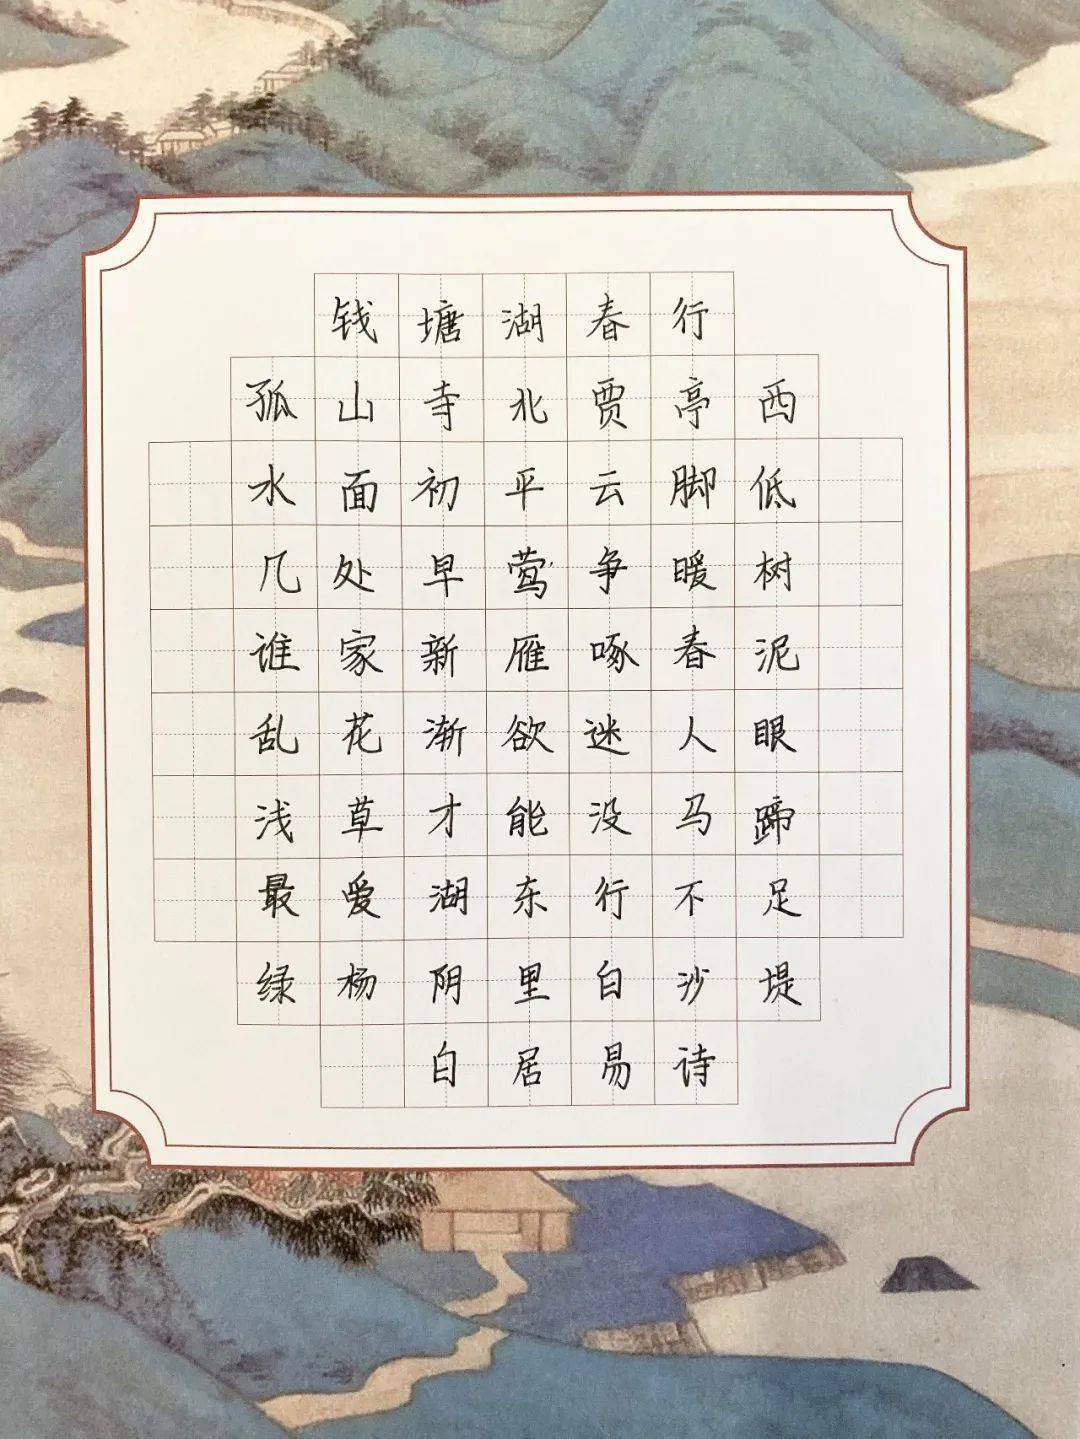 钱塘湖春行
孤山寺北贾亭西
水面初平云脚低
几处早莺争暖树
谁家新雁啄春泥
乱花渐欲迷人眼
浅草才能没马蹄
最爱湖东行不足
绿杨阴里白沙堤
白居易诗